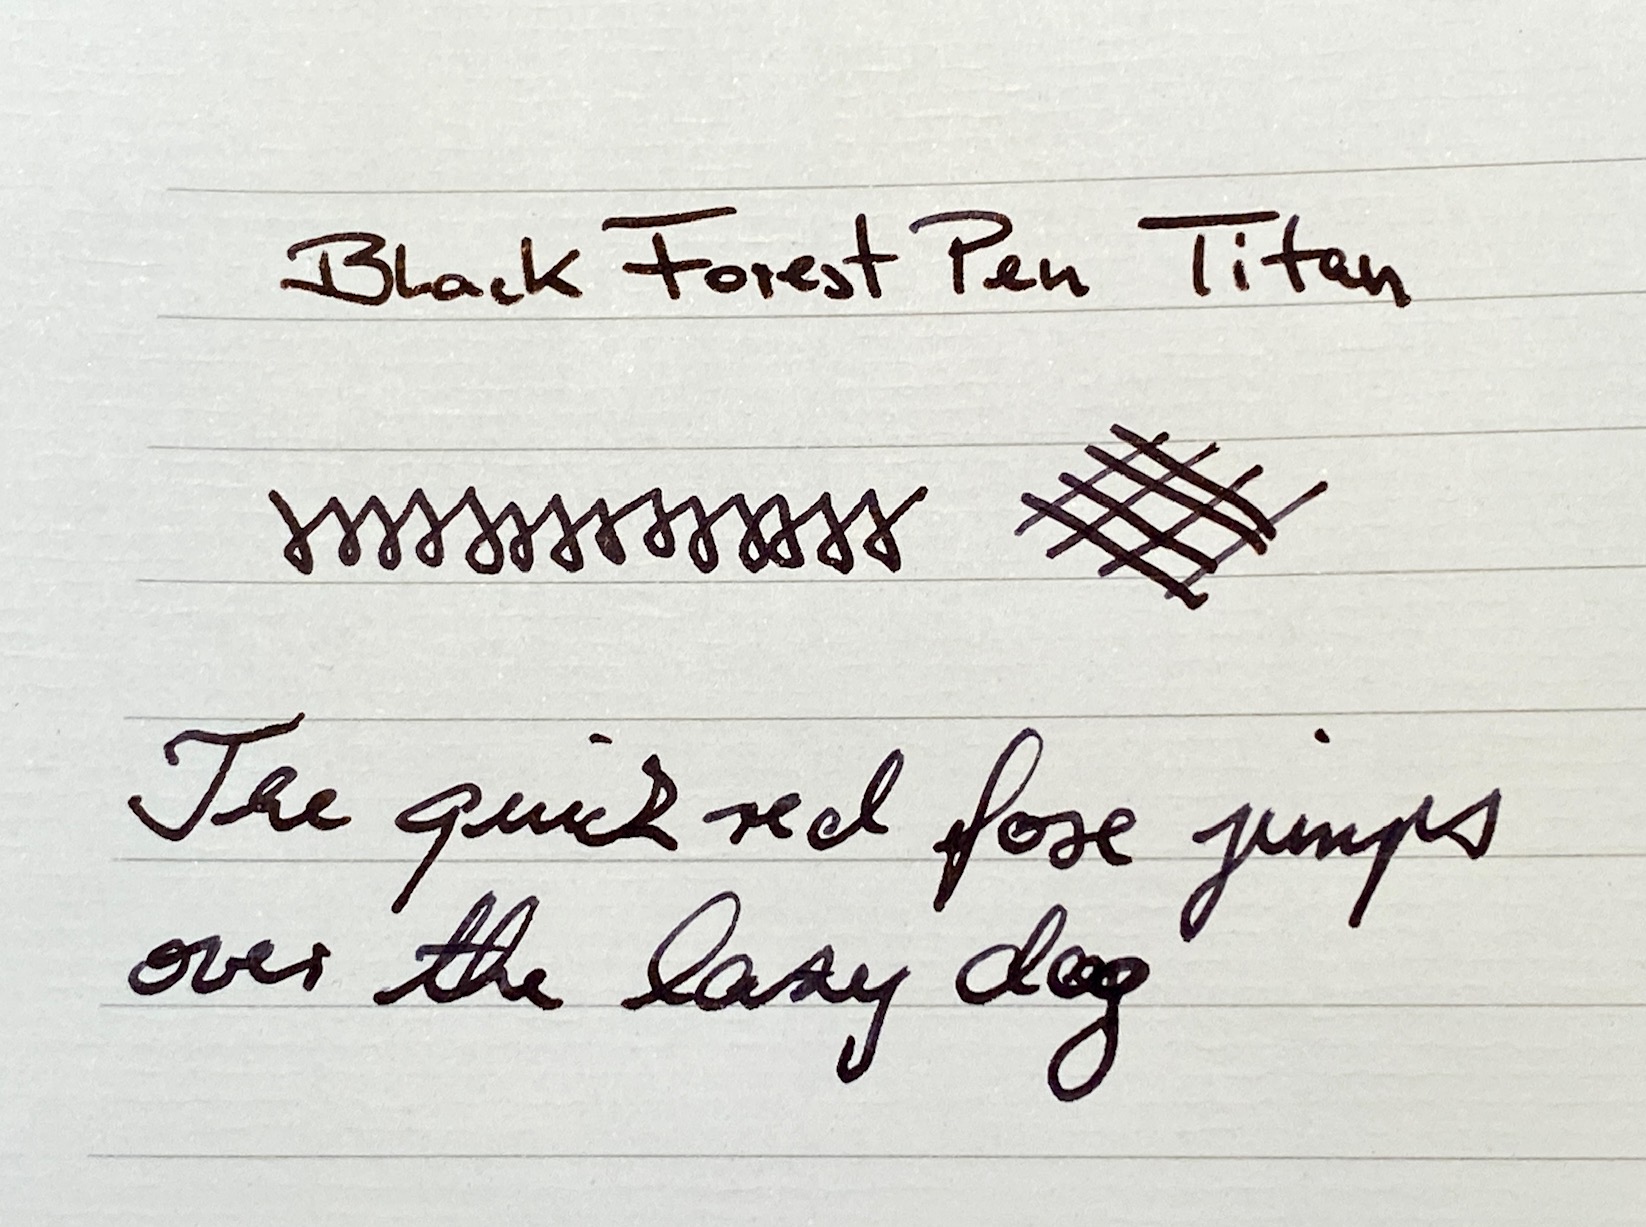 Black Forest Pen Titan
The quick red fox jumps
over the lazy dog